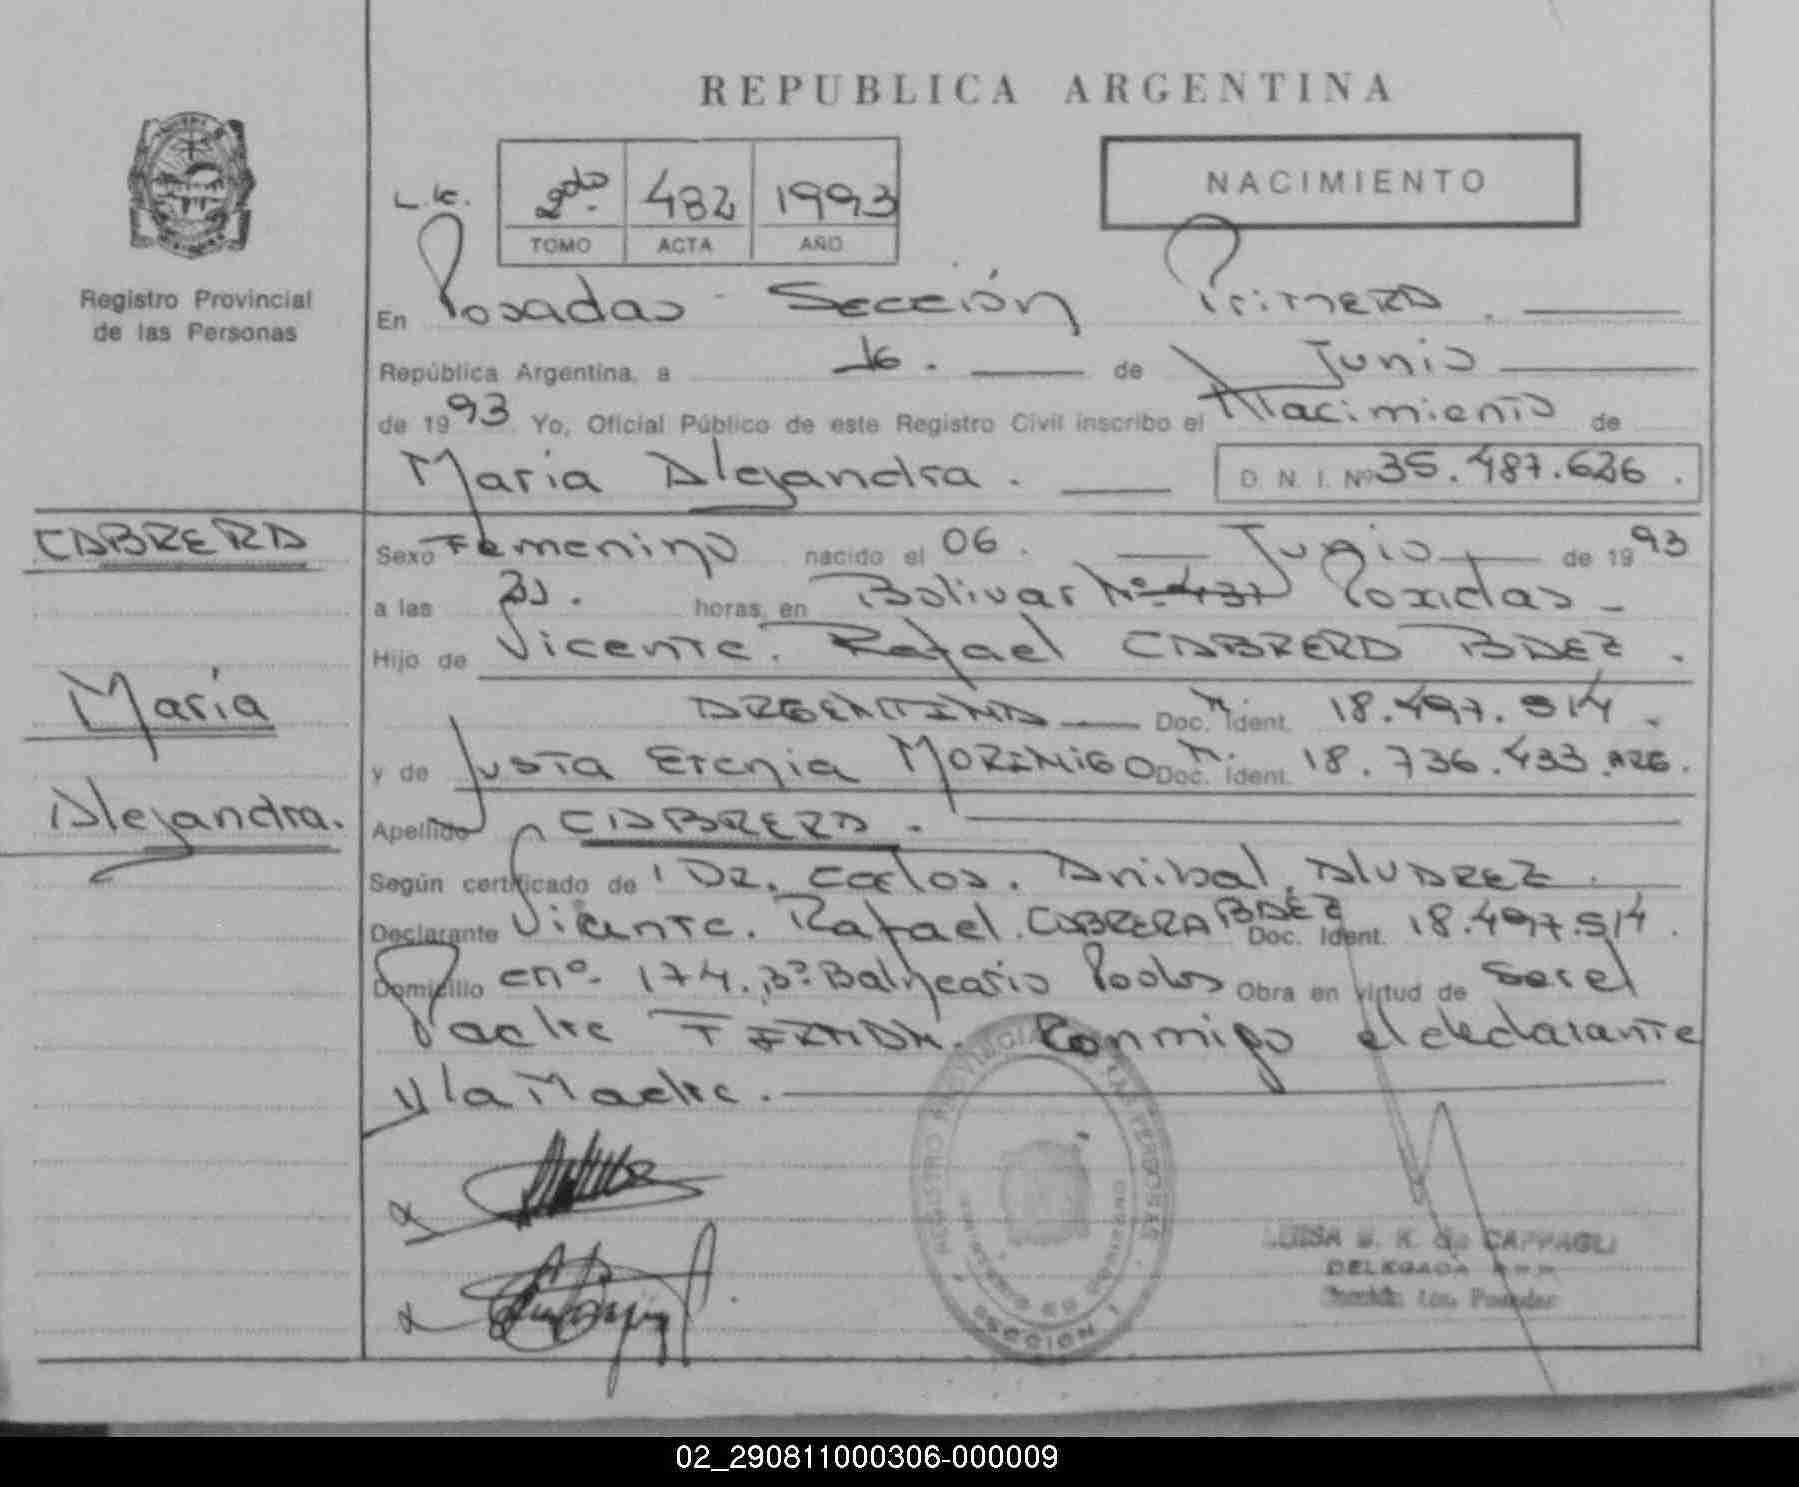 REPUBLICA ARGENTINA
NACIMIENTO
L. 1c. 2do. 482 1993
TOMO ACTA AÑO
Registro Provincial
de las Personas
En Posadas Sección Primera.
República Argentina, a 16. de Junio
de 1993 Yo, Oficial Público de este Registro Civil inscribo el Nacimiento de
Maria Alejandra. D. N. I. Nº 35.487.626.
CABRERA
Maria
Alejandra.
Sexo Femenino nacido el 06. Junio de 1993
a las horas, en Bolivar Nº 437 Posadas
Hijo de Vicente. Rafael CABRERA BAEZ.
ARGENTINA Doc. Ident. 18.497.514.
y de Justa MORINIGO Doc. Ident. 18.736.433. ARG.
Apellido CABRERA.
Según certificado de Dr. Carlos. Anibal. ALVAREZ.
Declarante Vicente. Rafael. CABRERA BAEZ Doc. Ident. 18.497.514.
Domicilio nº 174. Bº Balneario Pdas Obra en virtud de Ser el
Padre FIRMAN. Conmigo el declarante
y la Madre.
REGISTRO PROVINCIAL DE LAS PERSONAS
SECCION 1
LUISA DE CAPPAGLI
DELEGADA
02_290811000306-000009